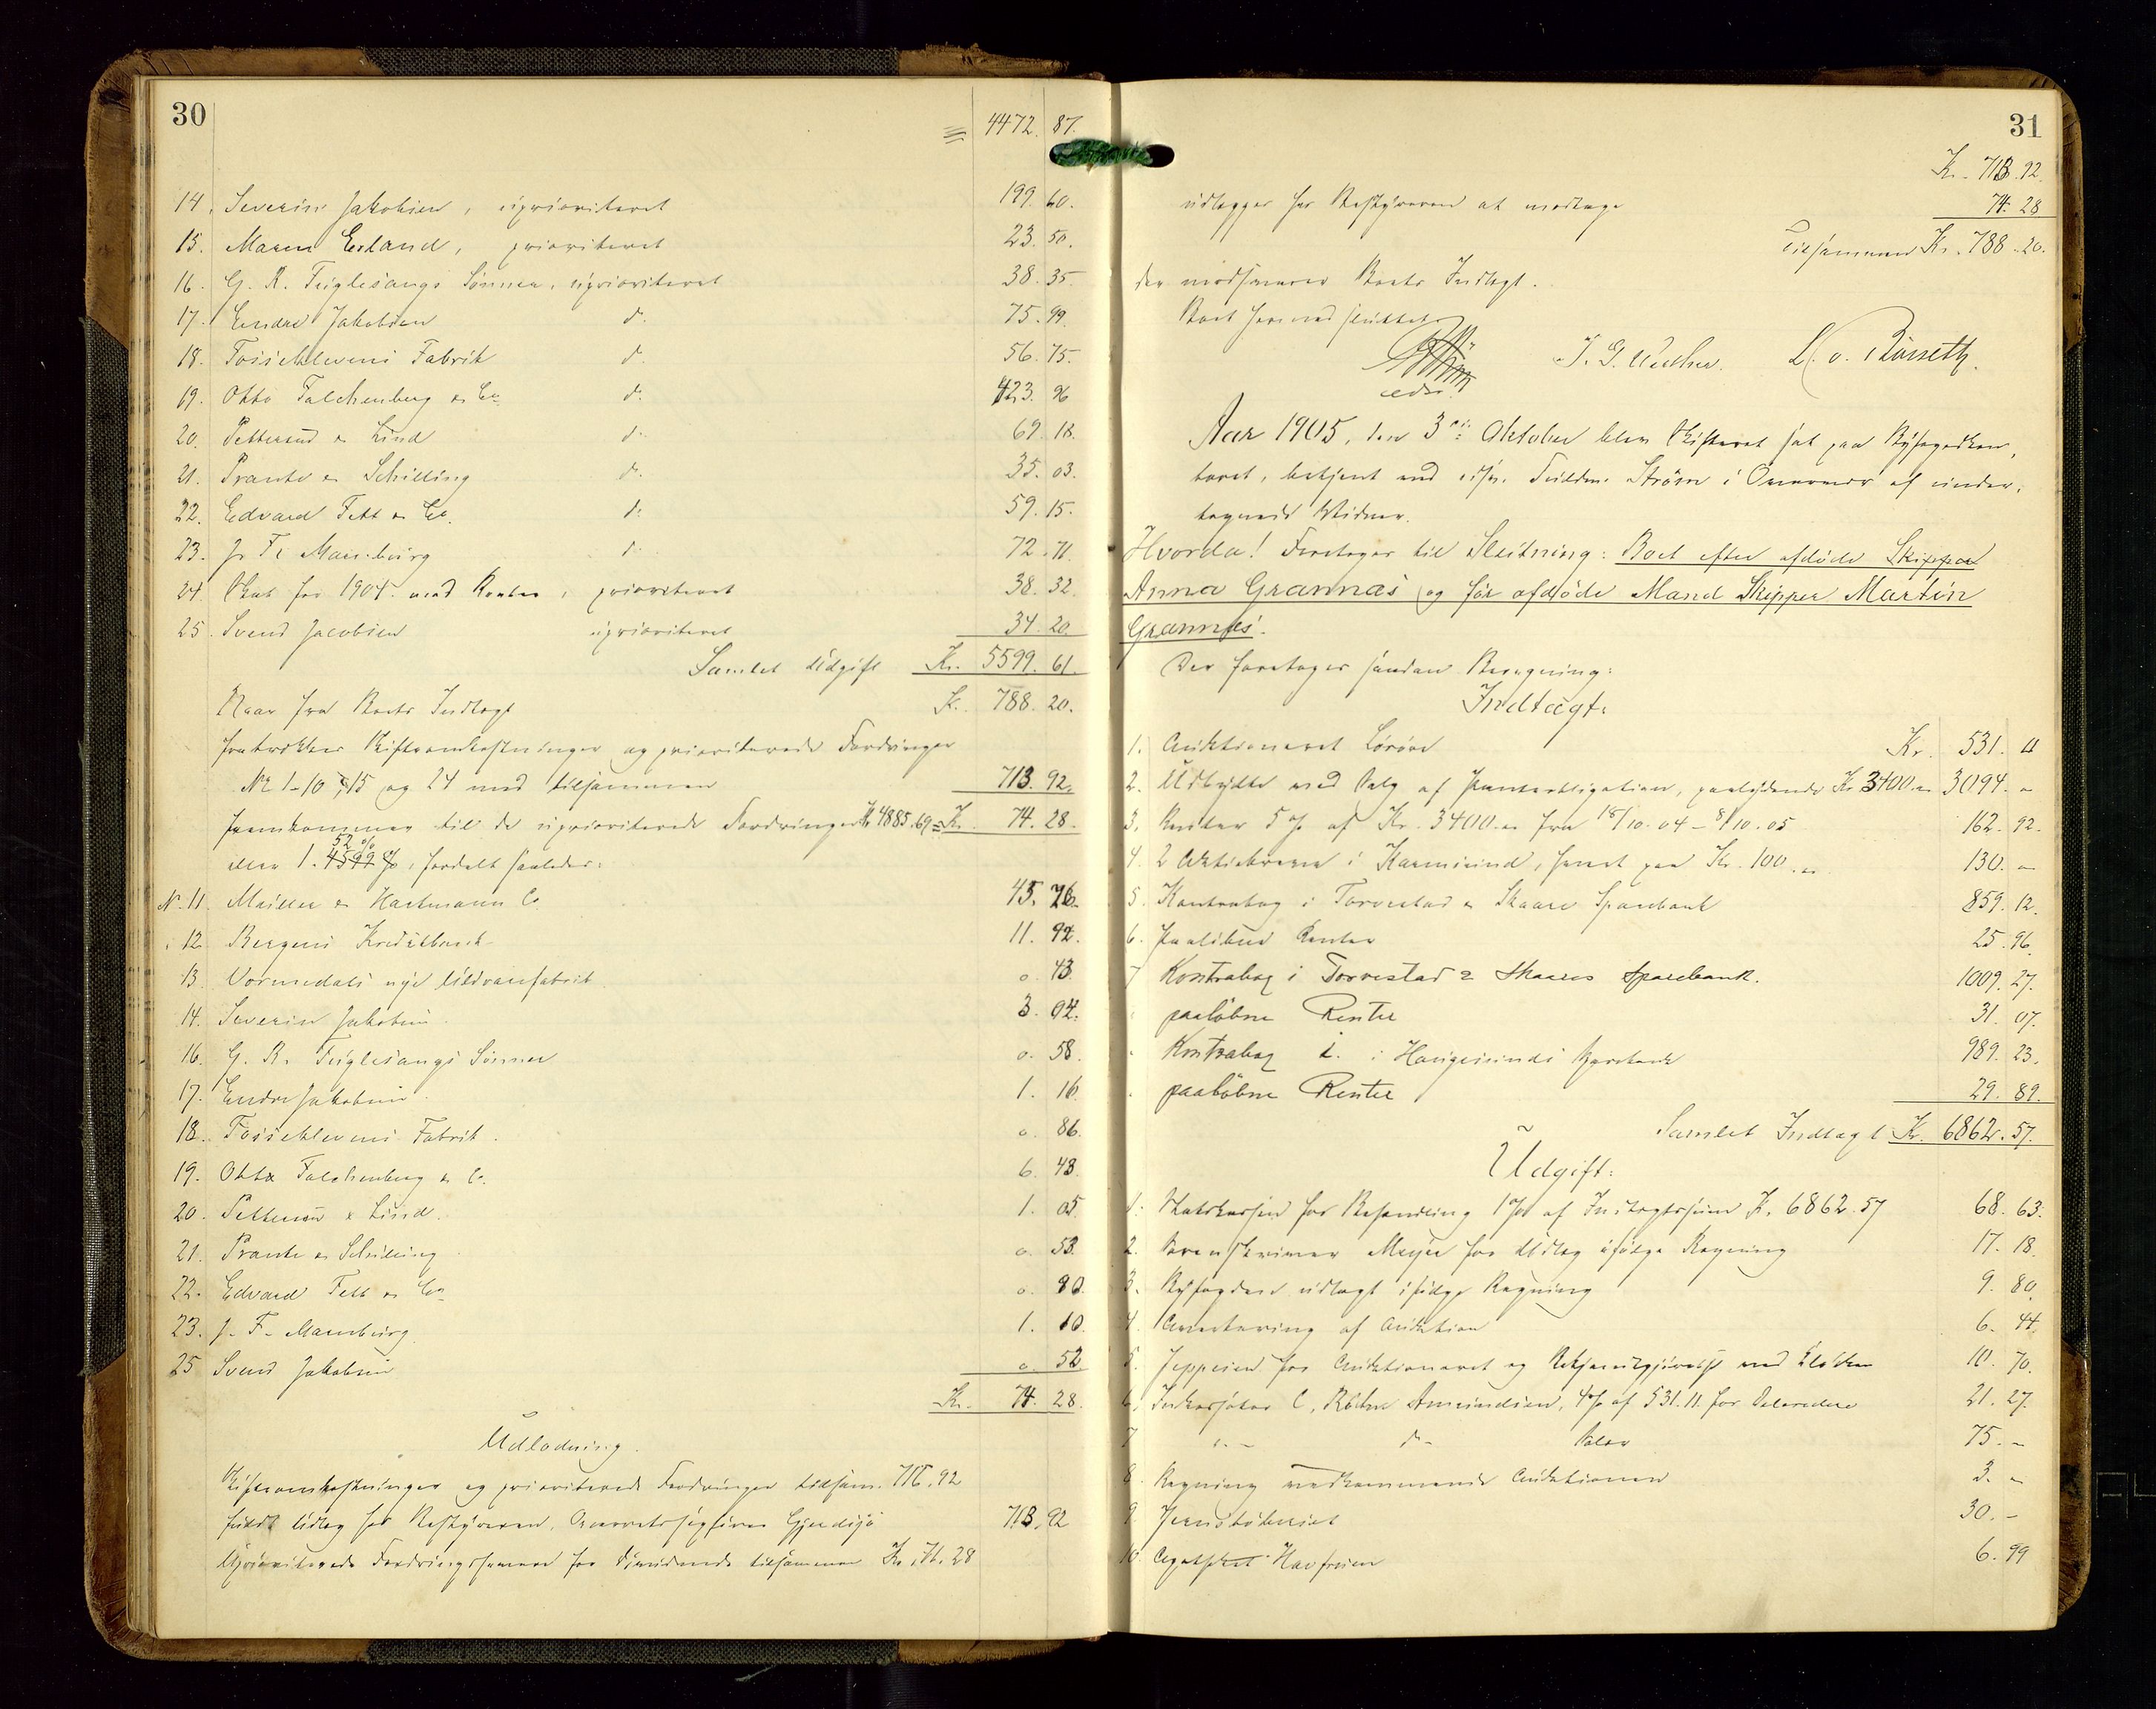 30
= 4472. 87.
14. Severin Jakobsen, uprioriteret 199. 60.
15. Maren Erland, prioriteret 23. 50.
16. G. R. Fuglesangs Sønner, uprioriteret 38. 35.
17. Endre Jakobsen d. 75. 99.
18. Fossekleven's Fabrik d. 56. 75.
19. Otto Falchenberg & Co. d. 423. 96
20. Pettersen & Lind d. 69. 18.
21. Prante & Schilling d. 35. 03.
22. Edvard Fett & Co. d. 59. 15.
23. J. F. Mamburg d. 72. 71.
24. Skat for 1904 med Renter, prioriteret 38. 32.
25. Svend Jacobsen uprioriteret 34. 20.
Samlet Udgift Kr. 5599. 61.
Naar fra Boets Indtægt K. 788. 20.
fratrækkes Skifteomkostninger og prioriterede Fordringer
No 1-10, 15 og 24 med tilsammen 713. 92.
fremkommer til de uprioriterede Fordringer Kr 4885.69 = Kr. 74. 28.
eller 1.52 %, fordelt saaledes:
N. 11 Müller & Hartmann Co. 45. 76.
" 12 Bergens Kreditbank 11. 92.
13 Vormedals nye Uldvarefabrik 0. 43.
14. Severin Jakobsen 3. 04.
16. G. R. Fuglesangs Sønner 0. 58.
17. Endre Jakobsen 1. 16.
18. Fosseklevens Fabrik. 0. 86.
19. Otto Falchenberg & Co. 6. 43.
20. Pettersen & Lind. 1. 05.
21. Prante & Schilling 0. 53.
22. Edvard Fett & Co. 0. 90.
23. J. F. Mamburg. 1. 10.
25 Svend Jakobsen 0. 52
Kr. 74. 28.
Udlodning.
Skifteomkostninger og prioriterede Fordringer tilsam. 713.92
fuldt Udlæg for Bestyreren, Overretssagfører Gjerdsjø 713. 92
Uprioriterede Fordringshavere for Dividende tilsammen Kr. 74.28
31
Kr. 713.92.
udlægges her Bestyreren at modtage 74. 28
Tilsammen Kr. 788. 20.
der modsvarer Boets Indtægt.
Boet hermed sluttet
Strøm edsv. L. v. Russeth.
Aar 1905, den 3die Oktober blev Skifteret sat paa Byfogedkon-
toret, betjent ved edsv. Fuldm. Strøm i Overvær af under-
tegnede Vidner.
Hvorda! Foretoges til Slutning: Boet efter afdøde Skipper
Anna Grannæs og før afdøde Mand Skipper Martin
Grannæs.
Der foretages saadan Beregning:
Indtægt.
1. Auktioneret Løsøre Kr. 531. 11
2. Udbytte ved Salg af Panteobligation, paalydende Kr 3400.- 3094. -
3. Renter 5 % af Kr. 3400.- fra 18/10.04 - 8/10.05 162. 92.
4. 2 Aktiebreve i Karmsund, hvert paa Kr. 100.- 130. -
5. Kontrabog i Torvestad & Skaare Sparebank 859. 12.
6. Paaløbne Renter 25. 96.
7 Kontrabog i Torvestad & Skaares Sparebank. 1009. 27.
" paaløbne Renter 31. 07.
" Kontrabog i Haugesunds Sparebank 989. 23.
" paaløbne Renter 29. 89.
Samlet Indtægt Kr. 6862. 57.
Udgift:
1. Statskassen for Behandling 1% af Indtægtssum K. 6862.57 68. 63.
2. Sorenskriver Meyer for Udlæg ifølge Regning 17. 18.
3. Byfogden udlagt ifølge Regning 9. 80.
4. Avertering af Auktion 6. 44.
5. Jeppesen for Auktioneret og 10. 70.
6. Inkassator C. Røhne Amundsen, 4% af 531.11 for 21. 27.
7 " - d - Salær 75. -
8. Regning vedkommende Auktionen 3. -
9. 30. -
10. Havfruen 6. 99